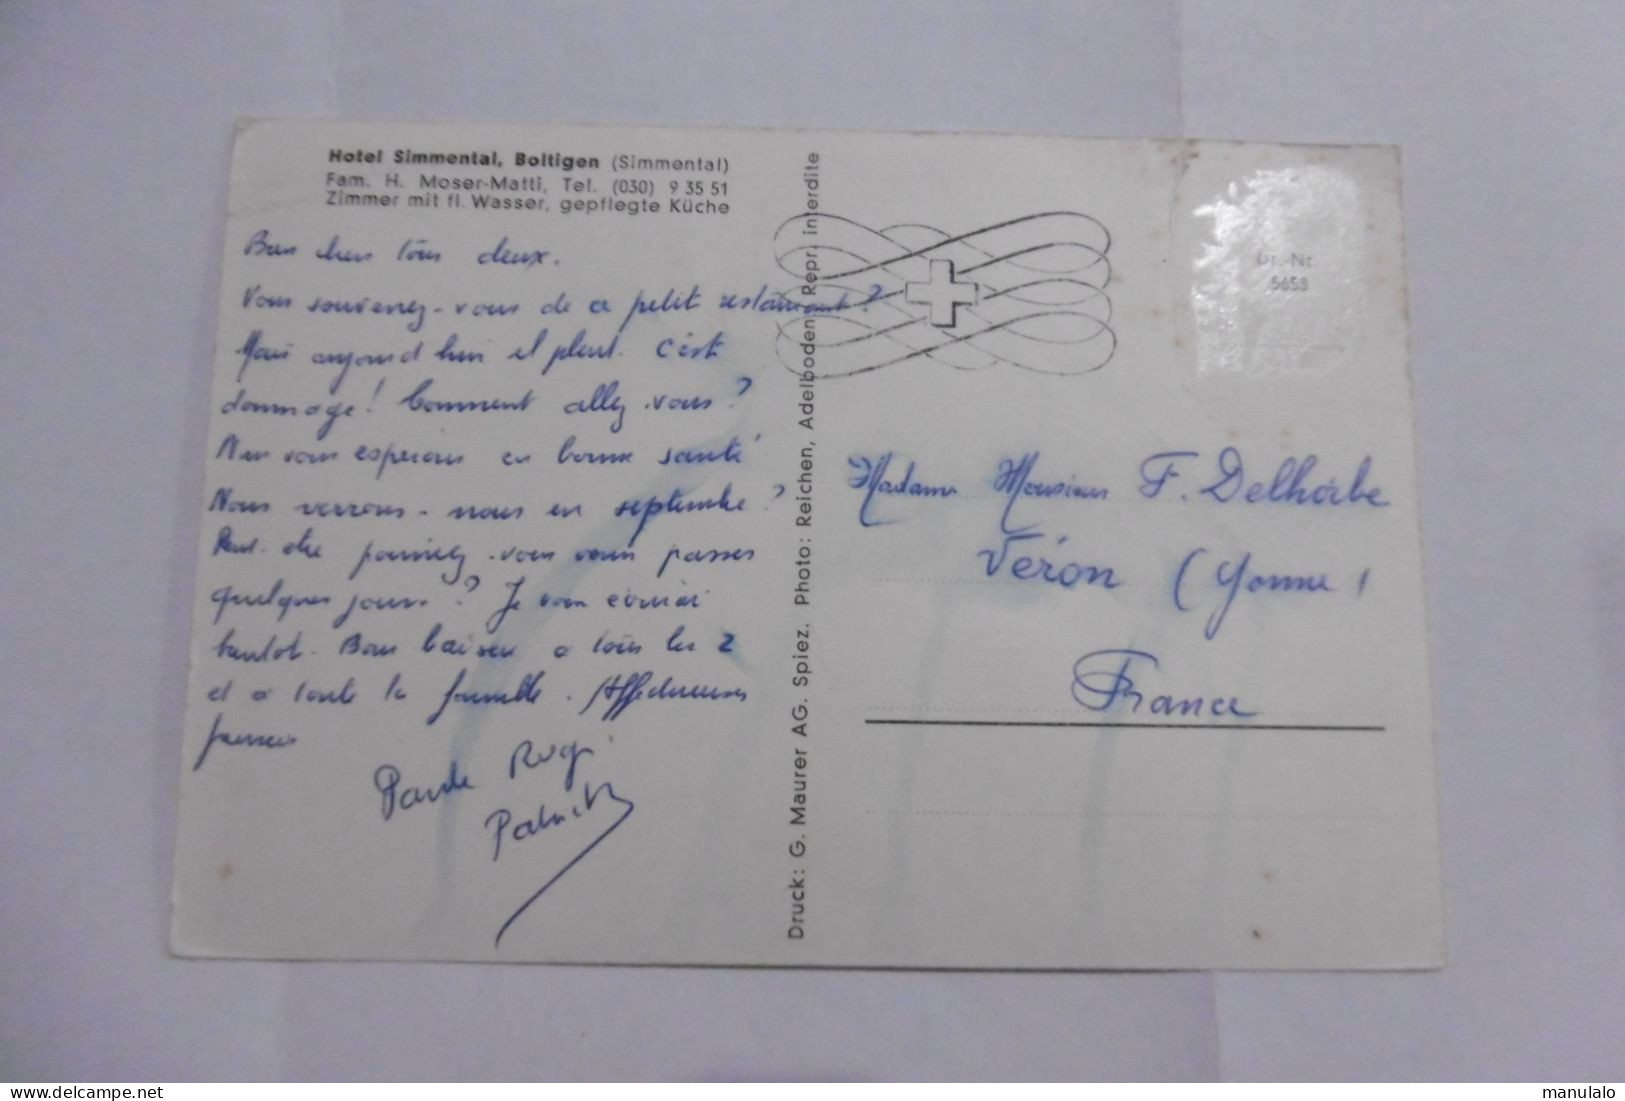 Hotel Simmental, Boltigen (Simmental)
Fam. H. Moser-Matti, Tel. (030) 9 35 51
Zimmer mit fl. Wasser, gepflegte Küche
Bien chers tous deux.
Vous souvenez-vous de ce petit restaurant ?
Mais aujourd hui il pleut. C'est
dommage ! Comment allez-vous ?
Nous vous espérons en bonne santé
Nous verrons-nous en septembre ?
Peut-être pourriez-vous venir passer
quelques jours ? Je vous écrirai
tantôt. Bons baisers a tous les 2
et a toute la famille. Affectueuses
pensées
Paule
Patrick
Druck: G. Maurer AG. Spiez. Photo: Reichen, Adelboden. Repr. interdite
Dr.-Nr.
5658
Madame Monsieur F. Delhorbe
Véron (Yonne)
France
www.delcampe.net
manulalo